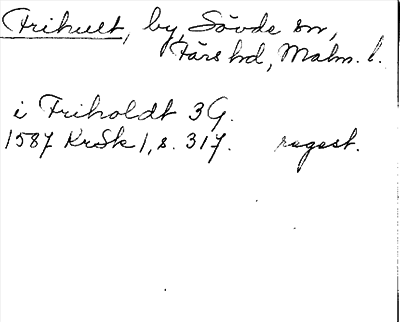 Frihult, by, Sövde sn,
Färs hd, Malm. l.
i Friholdt 3 G.
1587 KrSk 1, s. 317. regest.